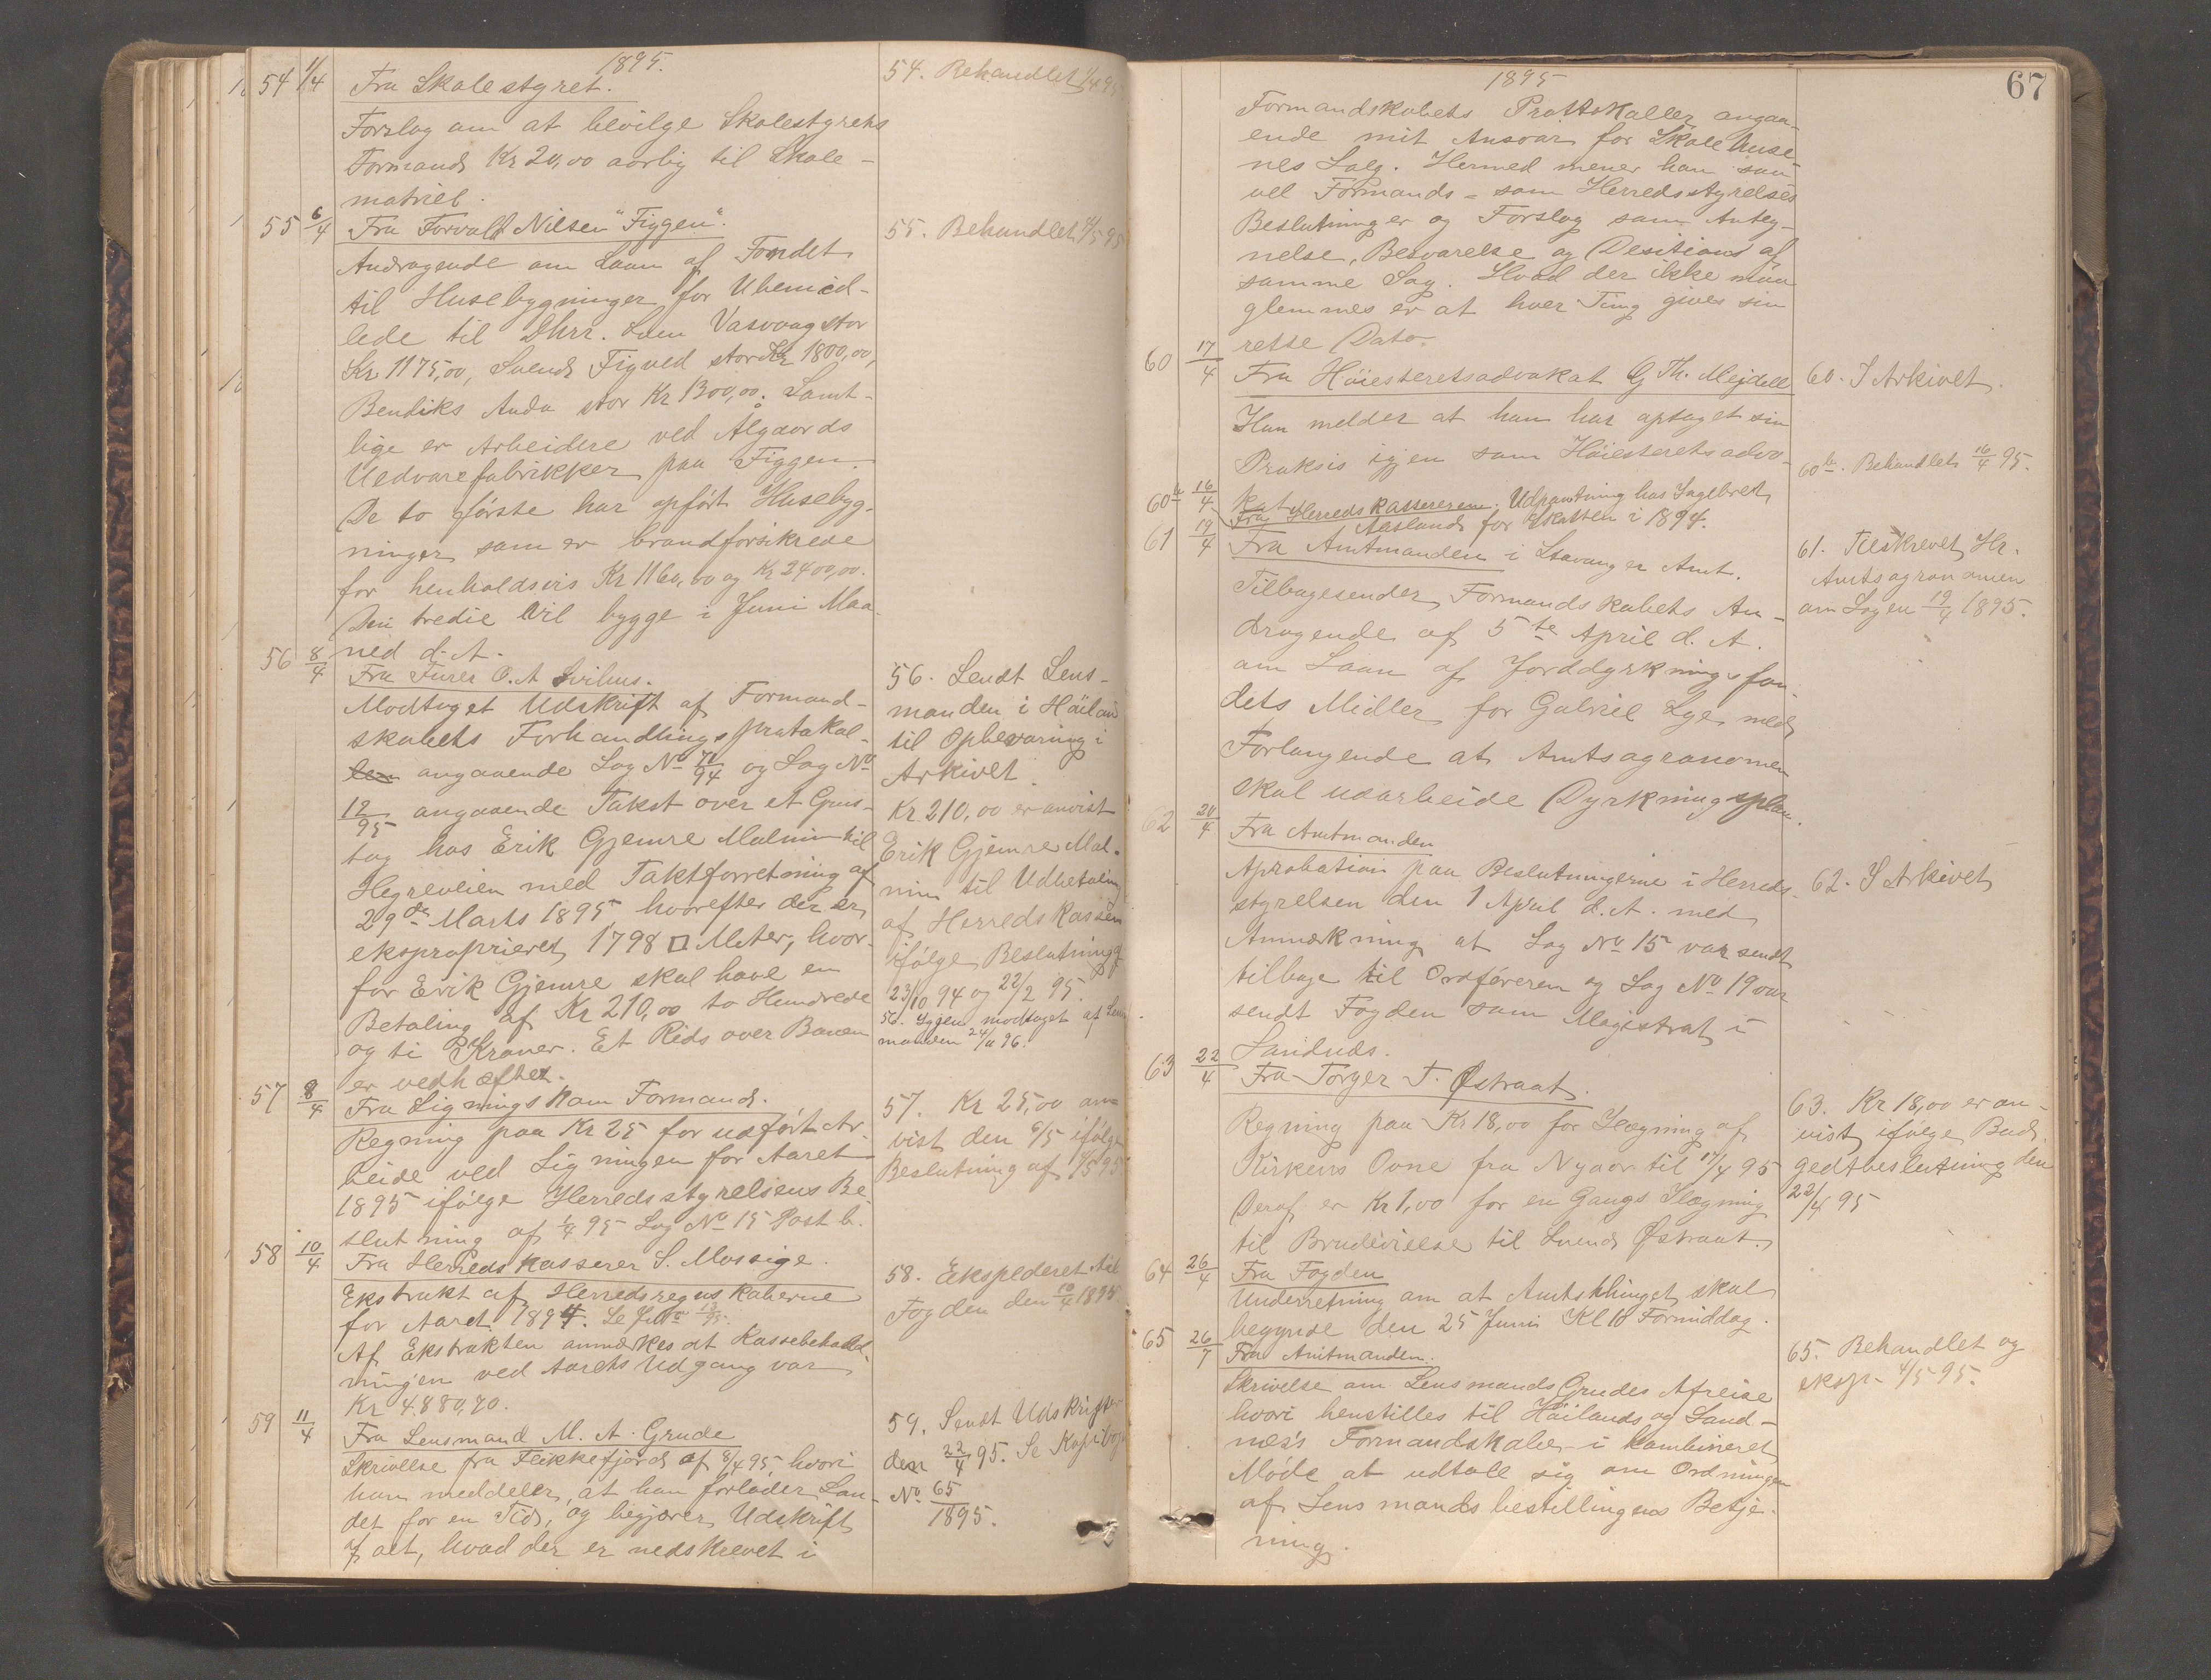 1895.
54 1/4 Fra Skolestyret.
Forslag om at bevilge Skolestyrets
Formand Kr 20,00 aarlig til Skole-
matriel.
54. Behandlet 1/4 95
55 6/4 Fra Torvald Nilsen "Figgen".
Andragende om Laan af Fondet
til Husebygninger for Ubemid-
lede til Dhrr. Vasvaag stor
Kr 1175,00, Svend Figved stor Kr 1800,00,
Bendiks Auda stor Kr 1300,00. Samt-
lige er Arbeidere ved Ålgaards
Uldvarefabrikker paa Figgen.
De to første har opført Husebyg-
ninger som er brandforsikrede
for henholdsvis Kr 1160,00 og Kr 2400,00.
Den tredie vil bygge i Juni Maa-
ned d. A.
55. Behandlet 4/5 95
56 8/4 Fra Furer O. A Svihus.
Modtaget Udskrift af Formand-
skabets Forhandlingsprotokol-
len angaaende Sag No 71/94 og Sag No
12/95 angaaende Takst over et Grus-
tag hos Erik Gjemre Malmin til
Hegreveien med Takstforretning af
29de Marts 1895, hvorefter der er
eksproprieret 1798 □ Meter, hvor-
for Erik Gjemre skal have en
Betaling af Kr 210,00 to Hundrede
og ti Kroner. Et Rids over Banen
er vedhæftet.
56. Sendt Lens-
manden i Høiland
til Opbevaring i
Arkivet.
Kr. 210,00 er anvist
Erik Gjemre Mal-
min til Udbetaling
af Herredskassen
ifølge Beslutning af
23/10 94 og 22/2 95.
56. Igjen modtaget af Lens
manden 24/11 96.
57 8/4 Fra Ligningskom Formand.
Regning paa Kr 25 for udført Ar-
beide ved Ligningen for Aaret
1895 ifølge Herredsstyrelsens Be-
slutning af 1/4 95 Sag No 15 Post b.
57. Kr 25,00 an-
vist den 6/5 ifølge
Beslutning af 4/5 95
58 10/4 Fra Herredskasserer S. Mossige.
Ekstrakt af Herredsregnskaberne
for Aaret 1894. Se J. No 13/95.
Af Ekstrakten anmærkes at Kassebehold-
ningen ved Aarets Udgang var
Kr 4.880,70.
58. Ekspederet til
Fogden den 10/4 1895
59 11/4 Fra Lensmand M. A. Grude
Skrivelse fra Flikkefjord af 8/4 95, hvori
han meddeler, at han forlader Lan-
det for en Tid, og begjærer Udskrift
af alt, hvad der er nedskrevet i
59. Sendt Udskrifter
den 22/4 95. Se Kopibog
No 65/1895.
67
1895
Formandskabets Prottokoller angaa-
ende mit Ansvar for Skolehuse-
nes Salg. Hermed mener han saa-
vel Formands- som Herredsstyrelses
Beslutninger og Forslag som Anteg-
nelse, Besvarelse og Desitions af
samme Sag. Hvad der ikke maa
glemmes er at hver Ting gives sin
rette Dato.
60 17/4 Fra Høiesteretsadvokat G Th. Mejdell
Han melder at han har optaget sin
Praksis igjen som Høiesteretsadvo-
kat
60. I Arkivet.
60b 16/4 Fra Herredskassereren. Udpantning hos Ingebret
Aasland for Skatten i 1894.
60b. Behandlet 16/4 95.
61 19/4 Fra Amtmanden i Stavanger Amt.
Tilbagesender Formandskabets An-
dragende af 5te April d. A.
om Laan af Jorddyrkningsfon-
dets Midler for Gabriel Lye, med
Forlangende at Amtsagronomen
skal udarbeide Dyrkningsplan.
61. Tilskrevet Hr.
Amtsagronomen
om Sagen 19/4 1895.
62 20/4 Fra Amtmanden
Aprobation paa Beslutningerne i Herreds-
styrelsen den 1 April d. A. med
Anmærkning at Sag No 15 var sendt
tilbage til Ordføreren og Sag No 19 var
sendt Fogden som Magistrat i
Sandnes.
62. I Arkivet
63 22/4 Fra Torger T. Østraat.
Regning paa Kr 18,00 for Ilægning af
Kirkens Ovne fra Nyaar til 17/4 95
Deraf er Kr 1,00 for en Gangs Ilægning
til Brudevielse til Svend Østraat.
63. Kr 18,00 er an-
vist ifølge Bud-
gedtbeslutning den
22/4 95
64 26/4 Fra Fogden
Underretning om at Amtsthinget skal
begynde den 25 Juni Kl 10 Formiddag.
65 26/7 Fra Amtmanden.
Skrivelse om Lensmand Grudes Afreise
hvori henstilles til Høilands og Sand-
nes's Formandskaber i kombineret
Møde at udtale sig om Ordningen
af Lensmandsbestillingens Betje-
ning.
65. Behandlet og
eksp. 4/5 95.